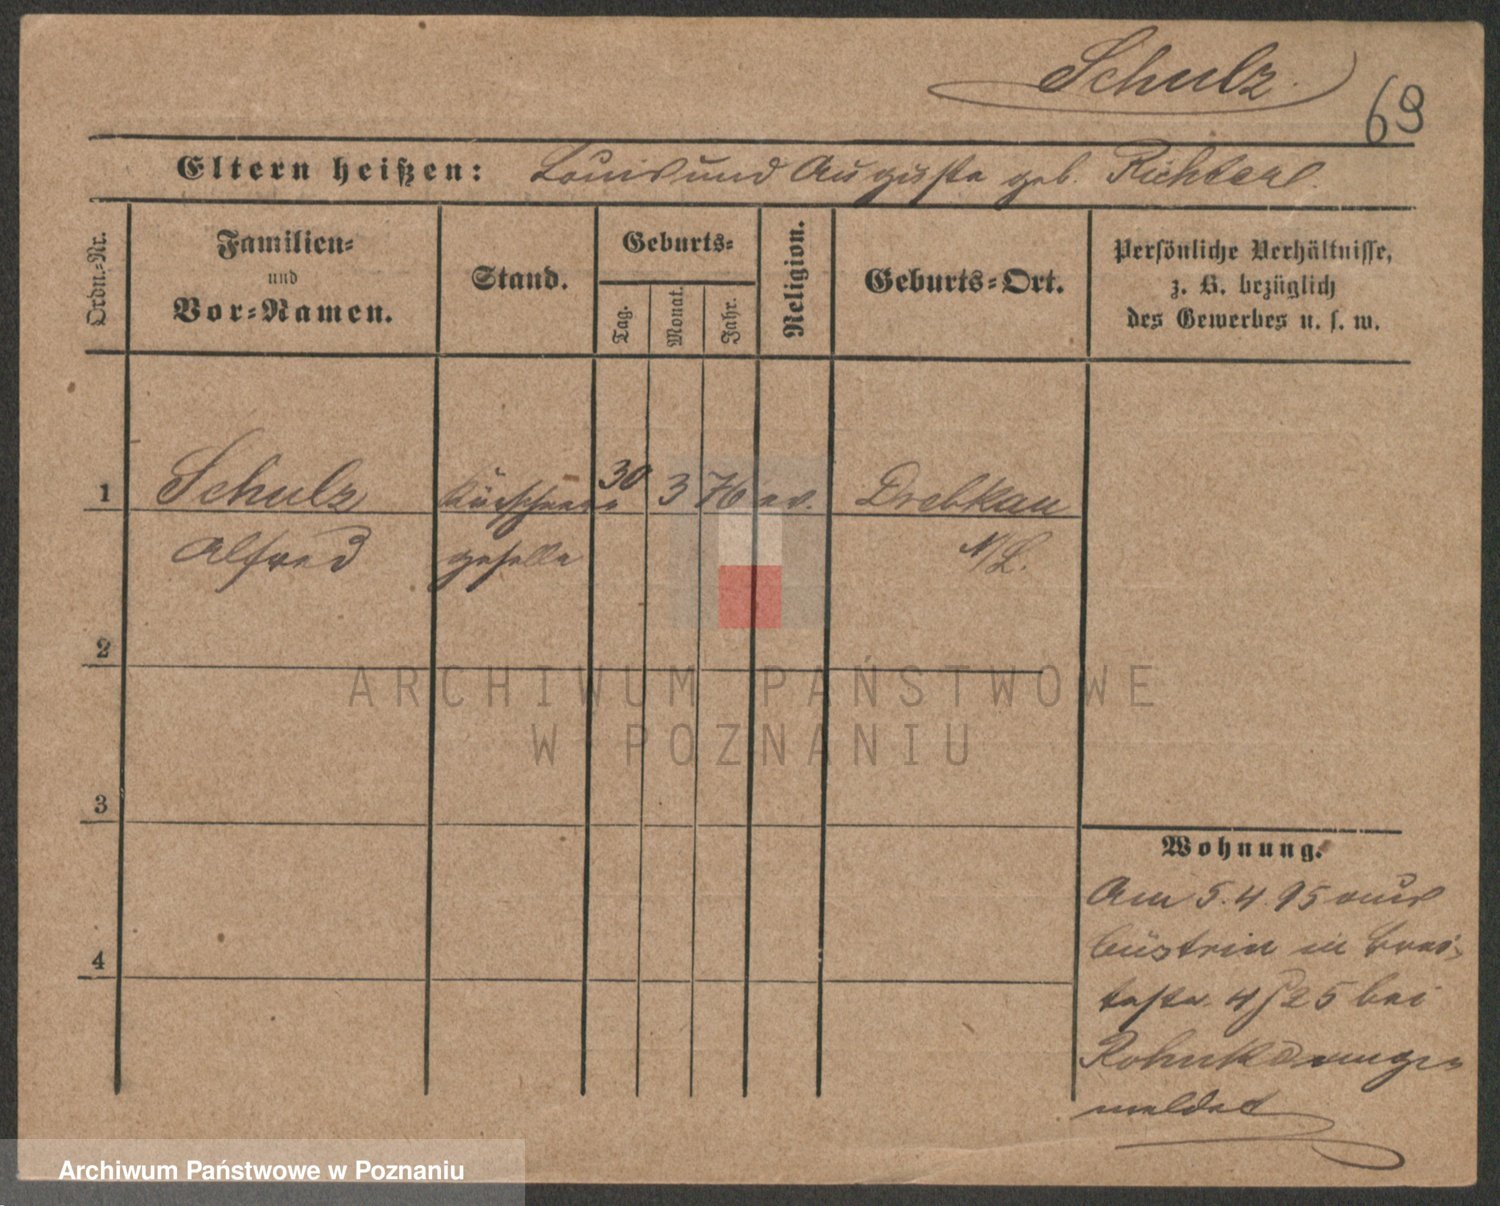 Schulz.
69
Eltern heißen: Louis und Auguste geb.
Ordn.-Nr.
Familien-
und
Vor-Namen.
Stand.
Geburts-
Tag.
Monat.
Jahr.
Religion.
Geburts-Ort.
Persönliche Verhältnisse,
z. B. bezüglich
des Gewerbes u. s. w.
1 Schulz Kürschner 30 3 76 ev. Drebkau
Alfred geselle N/L.
2
3
4
Wohnung.
Am 5.4.95 aus
Cüstrin in Brei-
testr. 4/25 bei
meldet
ARCHIWUM PAŃSTWOWE
W POZNANIU
Archiwum Państwowe w Poznaniu